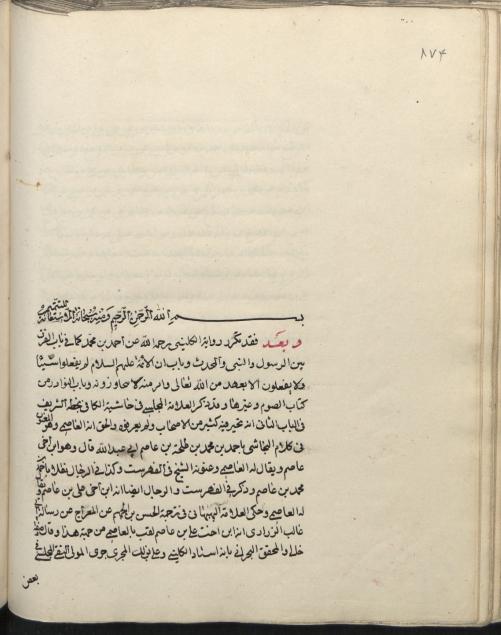 ٨٧٤
بسم الله الرحمن الرحيم ومنه سبحانه الاستعانة للتتميم
وبعد فقد تكرر رواية الكليني رحمه الله عن احمد بن محمد كما في باب الفرق
بين الرسول والنبي والمحدث وباب ان الائمة عليهم السلام لم يفعلوا شيئا
ولا يفعلون الا بعهد من الله تعالى وامر منه لا يتجاوزونه وباب النوادر من
كتاب الصوم وغيرها وقد ذكر العلامة المجلسي في حاشية الكافي بخطه الشريف
في الباب الثاني انه تحير فيه كثير من الاصحاب ولم يعرفوه والحق انه العاصمي وهو
في كلام النجاشي باحمد بن محمد بن طلحة بن عاصم ابي عبد الله قال وهو ابن اخي
عاصم ويقال له العاصمي وعنونه الشيخ في الفهرست وكذا في الرجال
محمد بن عاصم وذكر في الفهرست والرجال ايضا انه ابن اخي علي بن عاصم
له العاصمي وحكى العلامة البهبهاني في ترجمة الحسن بن الجهم عن المعراج عن رسالة
غالب الزراري انه ابن اخت علي بن عاصم لقب بالعاصمي من جهة هذا وقال
المحقق البحراني بانه استاد الكليني وعلى ذلك المجرى جرى المولى التقي المجلسي في
بعض